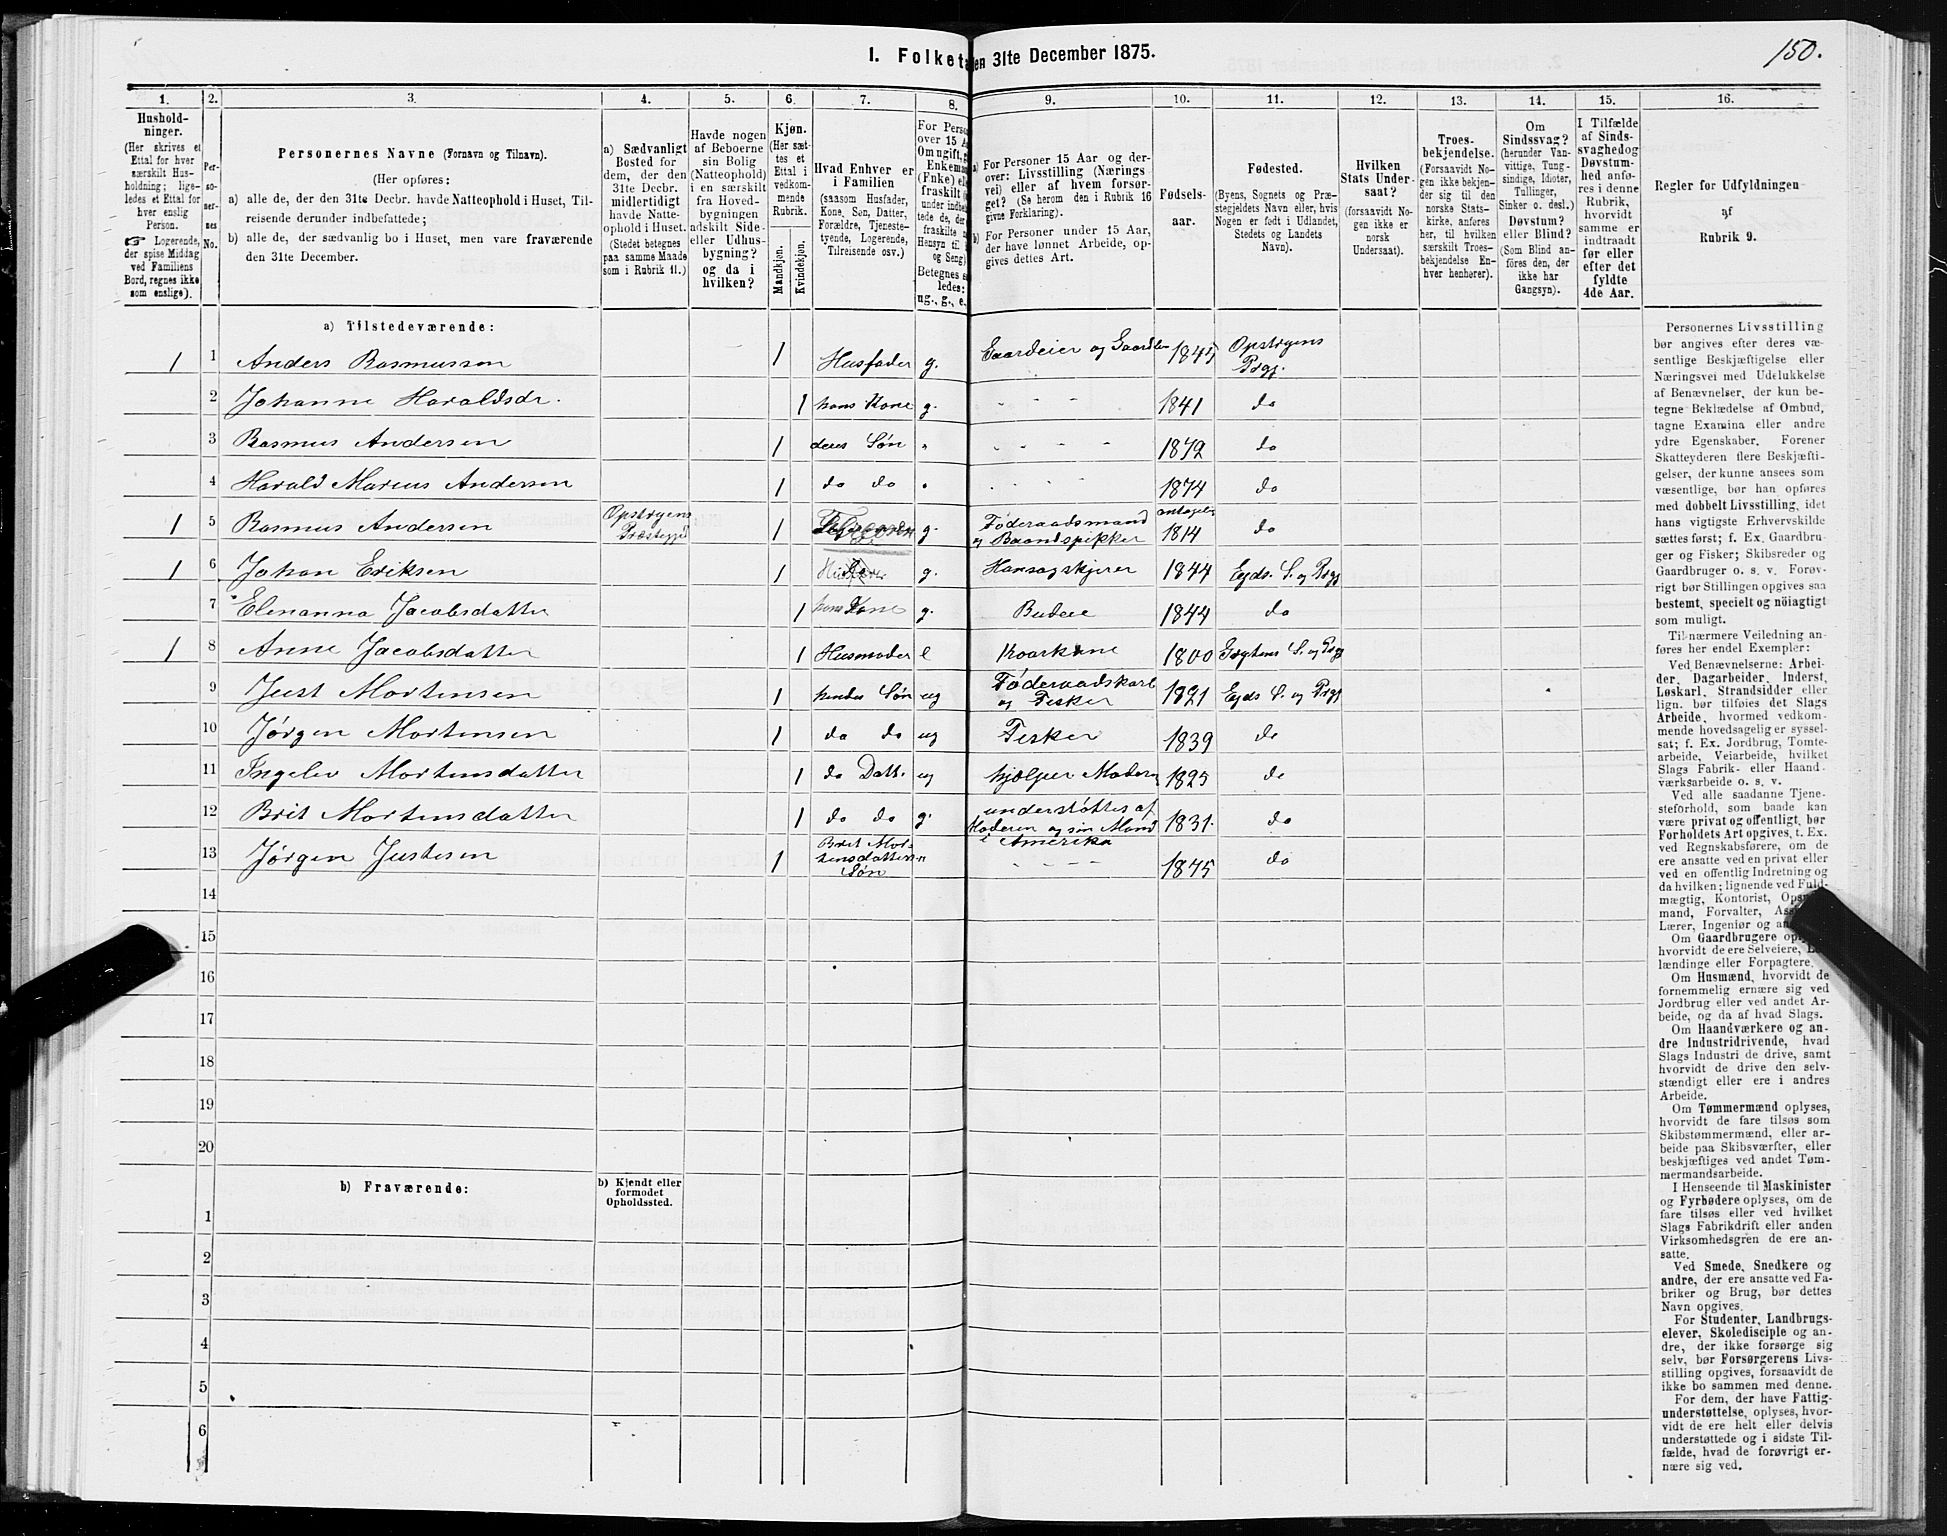 150.
I. Folketa en 31te December 1875.
1. 2. 3. 4. 5. 6. 7. 8. 9. 10. 11. 12. 13. 14. 15. 16.
Hushold-
ninger.
(Her skrives et
Ettal for hver
særskilt Hus-
holdning; lige-
ledes et Ettal for
hver enslig
Person.
☞ Logerende,
der spise Middag
ved Familiens
Bord, regnes ikke
som enslige).
Per-
so-
ner-
nes
No.
Personernes Navne (Fornavn og Tilnavn).
(Her opføres:
a) alle de, der den 31te Decbr. havde Natteophold i Huset, Til-
reisende derunder indbefattede;
b) alle de, der sædvanlig bo i Huset, men vare fraværende
den 31te December.
a) Sædvanligt
Bosted for
dem, der den
31te Decbr.
midlertidigt
havde Natte-
ophold i Huset.
(Stedet betegnes
paa samme Maade
som i Rubrik 11.)
Havde nogen
af Beboerne
sin Bolig
(Natteophold)
i en særskilt
fra Hoved-
bygningen
adskilt Side-
eller Udhus-
bygning?
og da i
hvilken?
Kjøn.
(Her sæt-
tes et
Ettal i
vedkom-
mende
Rubrik.
Mandkjøn.
Kvindekjøn.
Hvad Enhver er
i Familien
(saasom Husfader,
Kone, Søn, Datter,
Forældre, Tjeneste-
tyende, Logerende,
Tilreisende osv.)
For Perso
over 15 A
Om ugift, g
Enkeman
(Fnke) el
fraskilt
under indbe
tede de, de
fraskilte
Hensyn til
og Seng)
Betegnes s
ledes:
ug., g., e.
a) For Personer 15 Aar og der-
over: Livsstilling (Nærings
vei) eller af hvem forsør-
get? (Se herom den i Rubrik 16
givne Forklaring).
b) For Personer under 15 Aar,
der have lønnet Arbeide, op-
gives dettes Art.
Fødsels-
aar.
Fødested.
(Byens, Sognets og Præ-
stegjeldets Navn eller, hvis
Nogen er født i Udlandet,
Stedets og Landets
Navn).
Hvilken
Stats Under-
saat?
(forsaavidt No-
gen ikke er
norsk
Undersaat).
Troes-
bekjendelse.
(Forsaavidt No-
gen ikke bekjen-
der sig til den
norske Stats-
kirke, anføres
her, til hvilken
særskilt Troes-
bekjendelse En-
hver henhører).
Om
Sindssvag?
(herunder Van-
vittige, Tung-
sindige, Idioter,
Tullinger,
Sinker o. desl.)
Døvstum?
eller Blind?
(Som Blind an-
føres den, der
ikke har
Gangsyn).
I Tilfælde
af Sinds-
svaghed og
Døvstum-
hed anfø-
res i denne
Rubrik,
hvorvidt
samme er
indtraadt
før eller
efter det
fyldte
4de Aar.
Regler for Udfyldningen
af
Rubrik 9.
a) Tilstedeværende:
1 1 Anders Rasmussen 1 Husfader g. Gaardeier og 1845 Opstryens
Prgj.
2 Johanne Haraldsdr. 1 hans Kone g. " " " 1841 do
3 Rasmus Andersen 1 deres Søn " " " " " 1872 do
4 Harald Marius Andersen 1 do do " " " " " 1874 do
1 5 Rasmus Andersen Opstryens
Præstegjd 1 g. Føderaadsmand
og Baandspikker antagelig
1814 do
1 6 Johan Eriksen 1 g. Hansogskjører 1844 Eyds. S. og Prgj
7 Elenanna Jacobsdatter 1 hans Kone g. Budeie 1844 do
1 8 Anne Jacobsdatter 1 Husmoder e Kaarkone 1800 S. og Prgj
9 Just Mortensen 1 hendes Søn ug Føderaadskarl
og Fisker 1821 Eyds S. og Prgj
10 Jørgen Mortensen 1 do do ug Fisker 1839 do
11 Ingelev Mortensdatter 1 do Datt. ug hjælper Modern 1825 do
12 Brit Mortensdatter 1 do do g. understøttes af
Moderen og sin Mand
i Amerika 1831. do
13 Jørgen Justesen 1 Brit Mor-
tensdatters
Søn " " " " 1875 do
14
15
16
17
18
19
20
b) Fraværende:
b) Kjendt eller
formodet
Opholdssted.
1
2
3
4
5
6
Personernes Livsstilling
bør angives efter deres væ-
sentlige Beskjæftigelse eller
Næringsvei med Udelukkelse
af Benævnelser, der kun be-
tegne Beklædelse af Ombud,
tagne Examina eller andre
ydre Egenskaber. Forener
Skatteyderen flere Beskjæfti-
gelser, der kunne ansees som
væsentlige, bør han opføres
med dobbelt Livsstilling, idet
hans vigtigste Erhvervskilde
sættes først; f. Ex. Gaardbru-
ger og Fisker; Skibsreder og
Gaardbruger o. s. v. Forøv-
rigt bør Stillingen opgives saa
bestemt, specielt og nöiagtigt
som muligt.
Til nærmere Veiledning an-
føres her endel Exempler:
Ved Benævnelserne: Arbei-
der, Dagarbeider, Inderst,
Løskarl, Strandsidder eller
lign. bør tilføies det Slags
Arbeide, hvormed vedkom-
mende hovedsagelig er syssel-
sat; f. Ex. Jordbrug, Tomte-
arbeide, Veiarbeide, hvilket
Slags Fabrik- eller Haand-
værksarbeide o. s. v.
Ved alle saadanne Tjene-
steforhold, som baade kan
være privat og offentligt, bør
Forholdets Art opgives, t. Ex.
ved Regnskabsførere, om de
ere ansatte ved en privat eller
ved en offentlig Indretning og
da hvilken; lignende ved Fuld-
mægtig, Kontorist, Opsyns-
mand, Forvalter, Ass
Lærer, Ingeniør og an
Om Gaardbrugere oply
hvorvidt de ere Selveiere, Le
lændinge eller Forpagtere.
Om Husmænd, hvorvidt de
fornemmelig ernære sig ved
Jordbrug eller ved andet Ar-
beide, og da af hvad Slags.
Om Haandværkere og an-
dre Industridrivende, hvad
Slags Industri de drive, samt
hvorvidt de drive den selv-
stændigt eller ere i andres
Arbeide.
Om Tømmermænd oplyses,
hvorvidt de fare tilsøs som
Skibstømmermænd, eller ar-
beide paa Skibsværfter, eller
beskjæftiges ved andet Tøm-
mermandsarbeide.
I Henseende til Maskinister
og Fyrbødere oplyses, om de
fare tilsøs eller ved hvilket
Slags Fabrikdrift eller anden
Virksomhedsgren de ere an-
satte.
Ved Smede, Snedkere og
andre, der ere ansatte ved Fa-
briker og Brug, bør dettes
Navn opgives.
For Studenter, Landbrugs-
elever, Skoledisciple og an-
dre, der ikke forsørge sig
selv, bør Forsørgerens Livs-
stilling opgives, forsaavidt de
ikke bo sammen med denne.
For dem, der have Fattig-
understøttelse, oplyses, hvor-
vidt de ere helt eller delvis
understøttede og i sidste Til-
fælde, hvad de forøvrigt er-
nære sig ved.